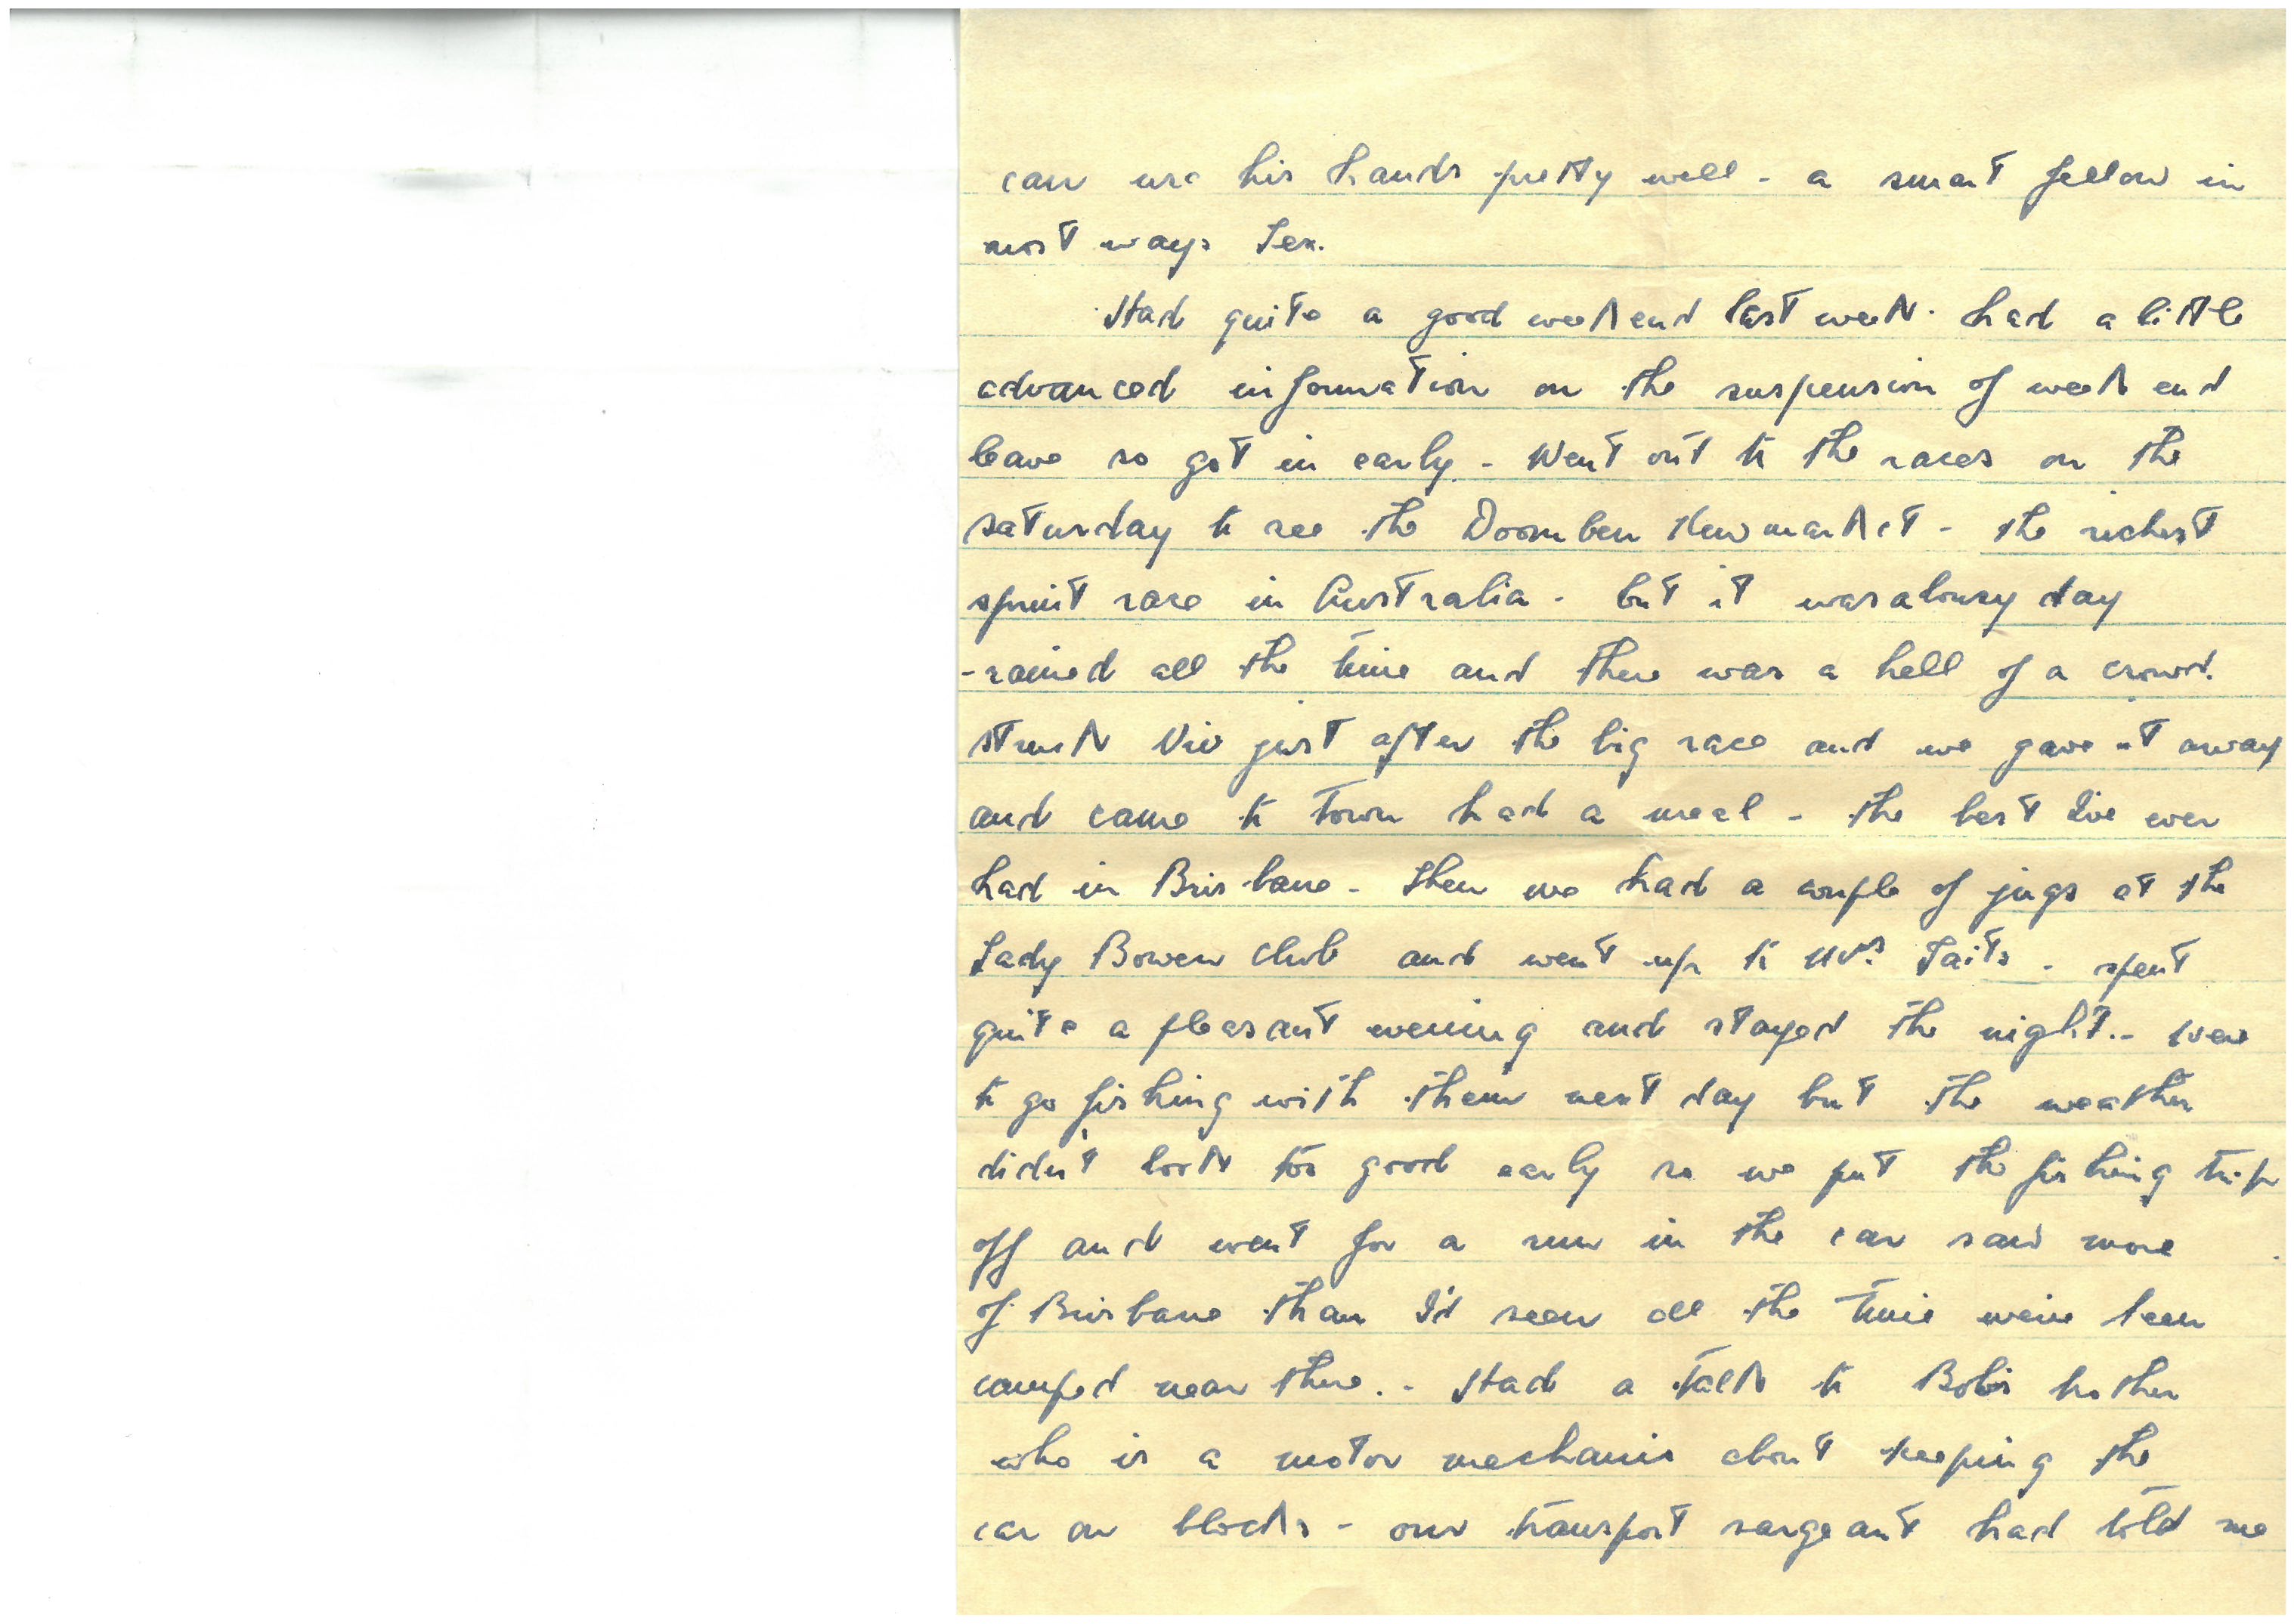 can use his hands pretty well - a smart fellow in
most ways Tex.
Had quite a good weekend last week. had a little
advanced information on the suspension of week end
leave so got in early - Went out to the races on the
saturday to see the Doomben Newmarket - the richest
sprint race in Australia - but it was a lousy day
- rained all the time and there was a hell of a crowd.
struck Viv just after the big race and we gave it away
and came to town had a meal - the best I've ever
had in Brisbane - then we had a couple of jugs at the
Lady Bowen Club and went up to Mrs Taits - spent
quite a pleasant evening and stayed the night. - were
to go fishing with them next day but the weather
didn't look too good early so we put the fishing trip
off and went for a run in the car saw more
of Brisbane than I'd seen all the time we've been
camped near there. - Had a talk to Bob's brother
who is a motor mechanic about keeping the
car on blocks - our transport sargeant had told me